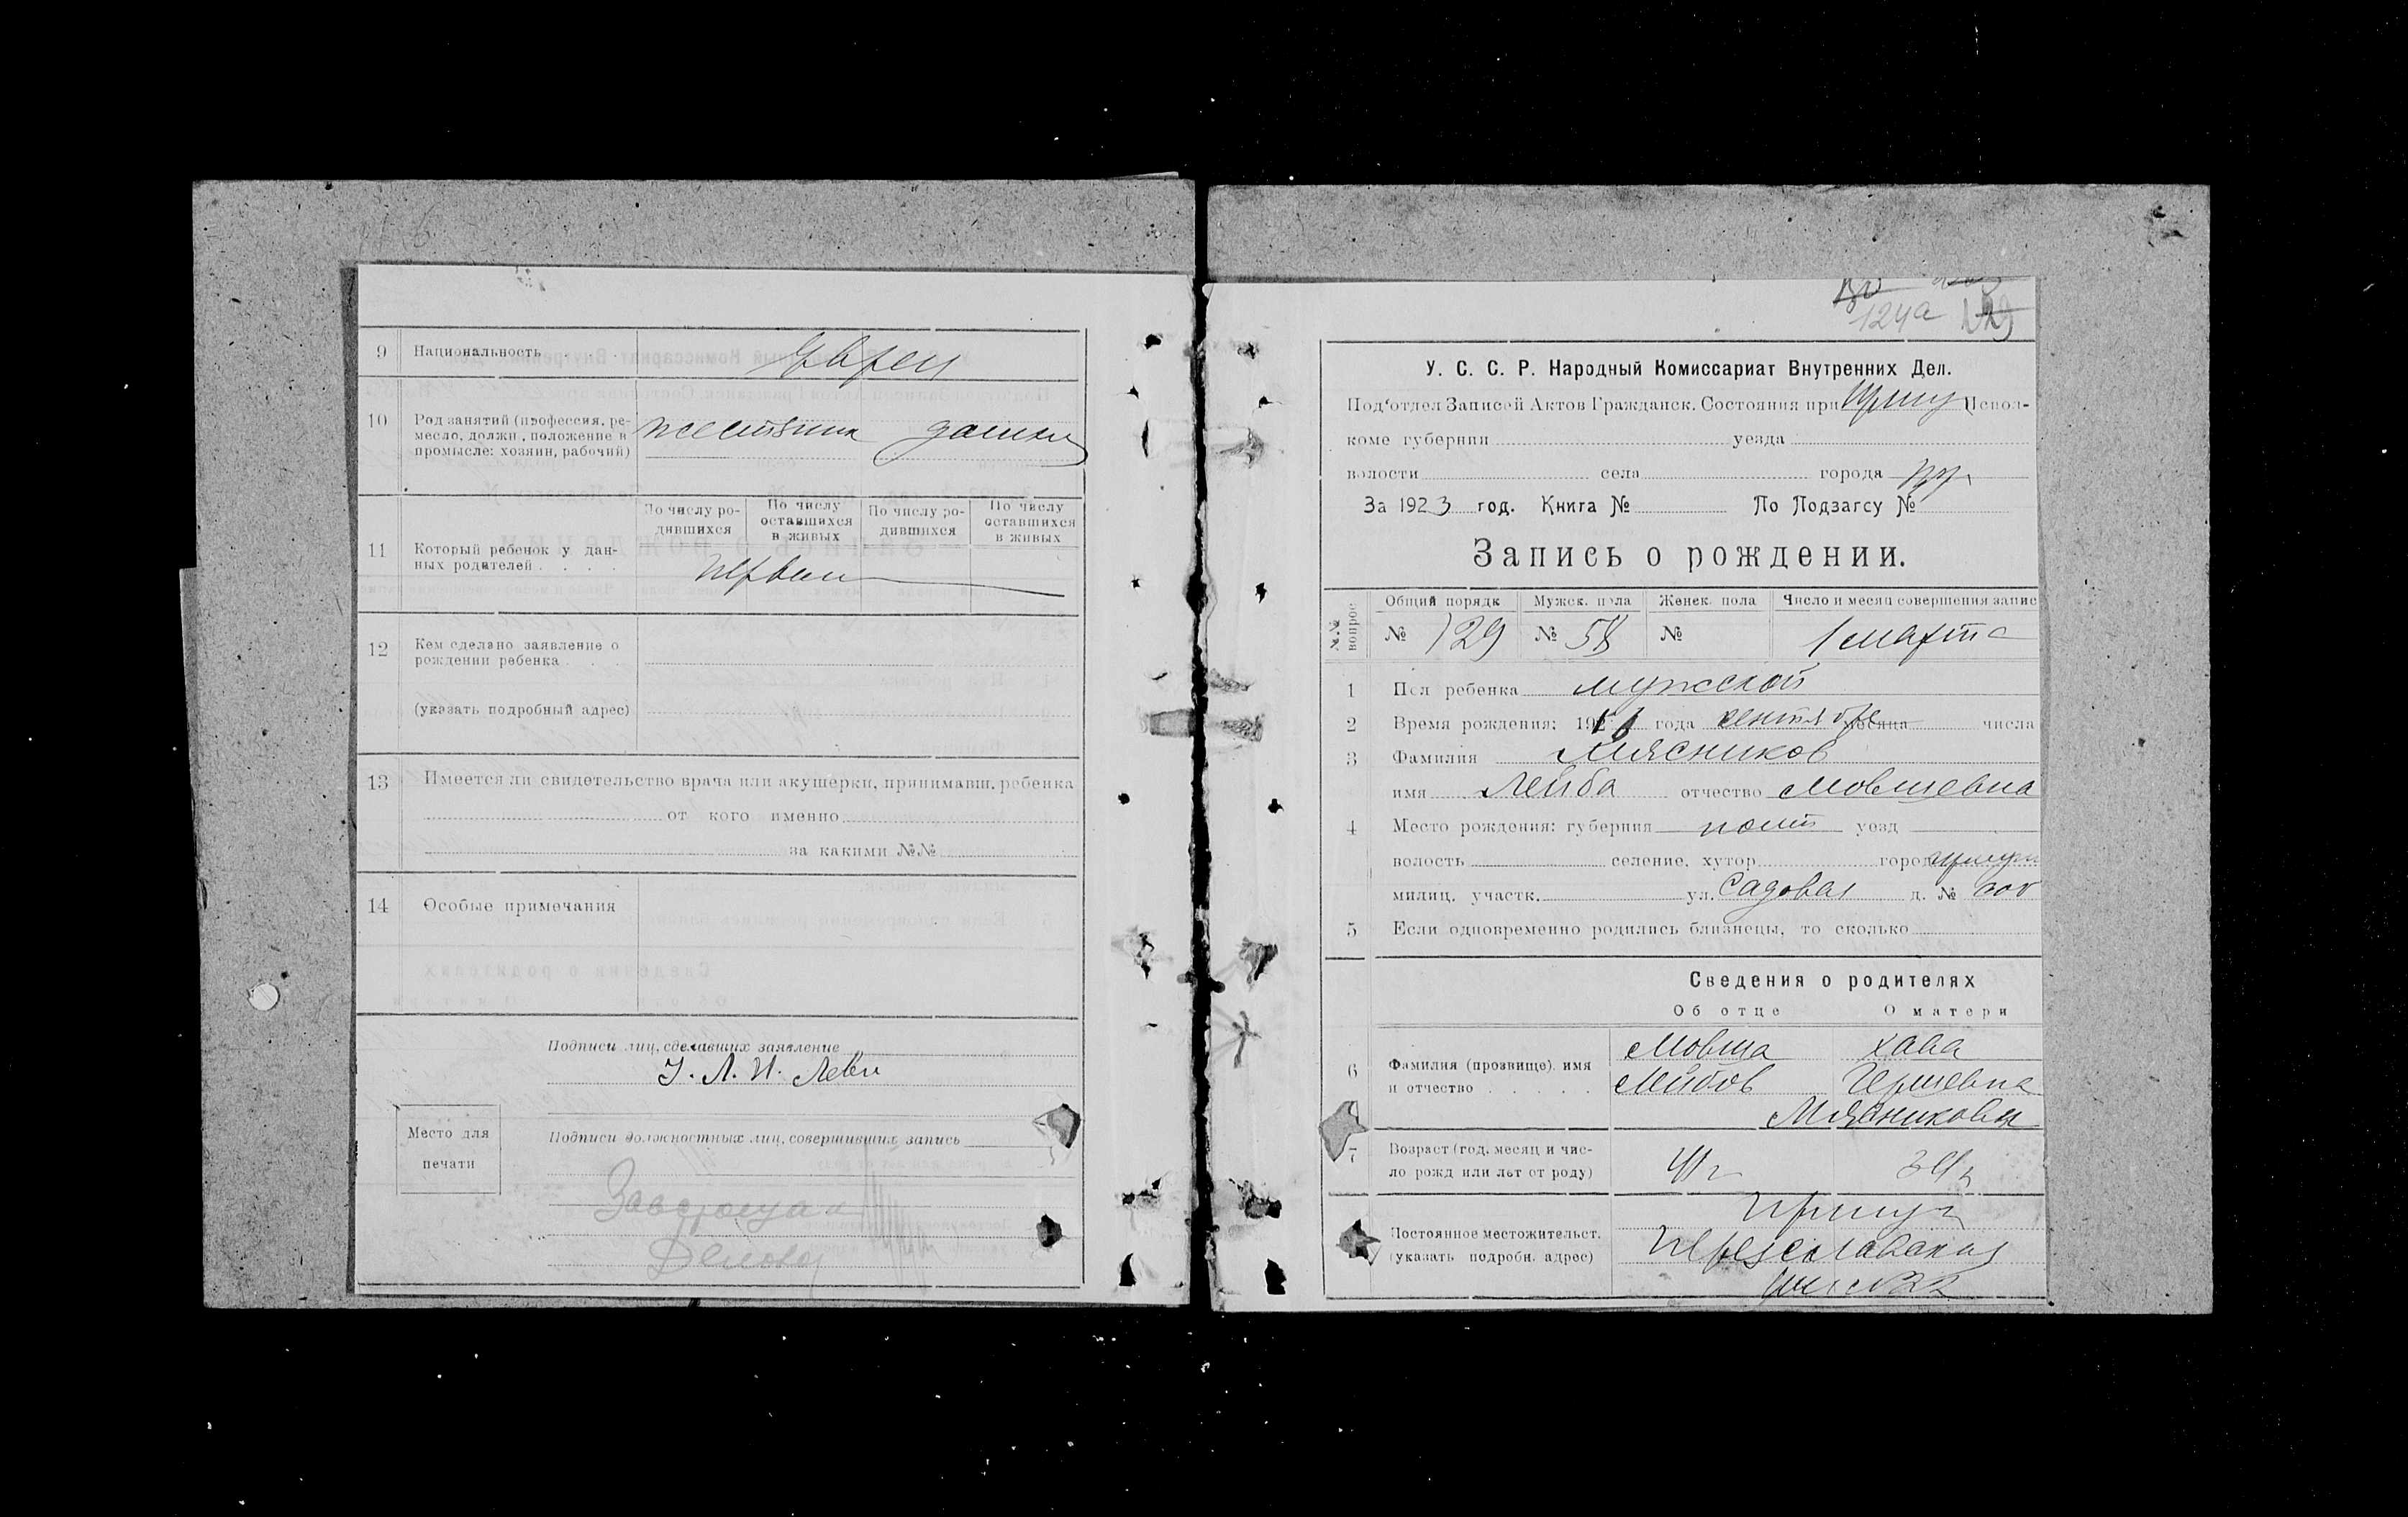 9 Национальность Евреи
10 Род занятий (профессия, ре-
месло, должн., положение в
промысле: хозяин, рабочий)
жестяник домхоз
По числу ро-
дившихся
По числу
оставшихся
в живых
По числу ро-
дившихся
По числу
оставшихся
в живых
11 Который ребенок у дан-
ных родителей . . . .
12 Кем сделано заявление о
рождении ребенка . . .
(указать подробный адрес)
13 Имеется ли свидетельство врача или акушерки, принимавш. ребенка
от кого именно
за какими №№
14 Особые примечания
Подписи лиц, сделавших заявление
Место для
печати
Подписи должностных лиц, совершивших запись
124а 129
У. С. С. Р. Народный Комиссариат Внутренних Дел.
Под'отдел Записей Актов Гражданск. Состояния при Испол-
коме губернии уезда
волости села города
За 1923 год. Книга № По Подзагсу №
Запись о рождении.
№№ вопрос
Общий порядк Мужск. пола Женск. пола Число и месяц совершения запис
№ 129 № 58 № 1 марта
1 Пол ребенка мужской
2 Время рождения: 19 года сентября месяца числа
3 Фамилия Мясников
имя Лейба отчество Мовшевна
4 Место рождения: губерния полт уезд
волость селение, хутор город
милиц. участк. ул. Садовая д. № соб
5 Если одновременно родились близнецы, то сколько
Сведения о родителях
Об отце О матери
6 Фамилия (прозвище), имя
и отчество . . . . .
Мовша Хава
Лейбов Гершевна
Мясниковы
7 Возраст (год, месяц и чис-
ло рожд или лет от роду)
41 г 34 г
Постоянное местожительст.
(указать подробн. адрес)
Переяславская